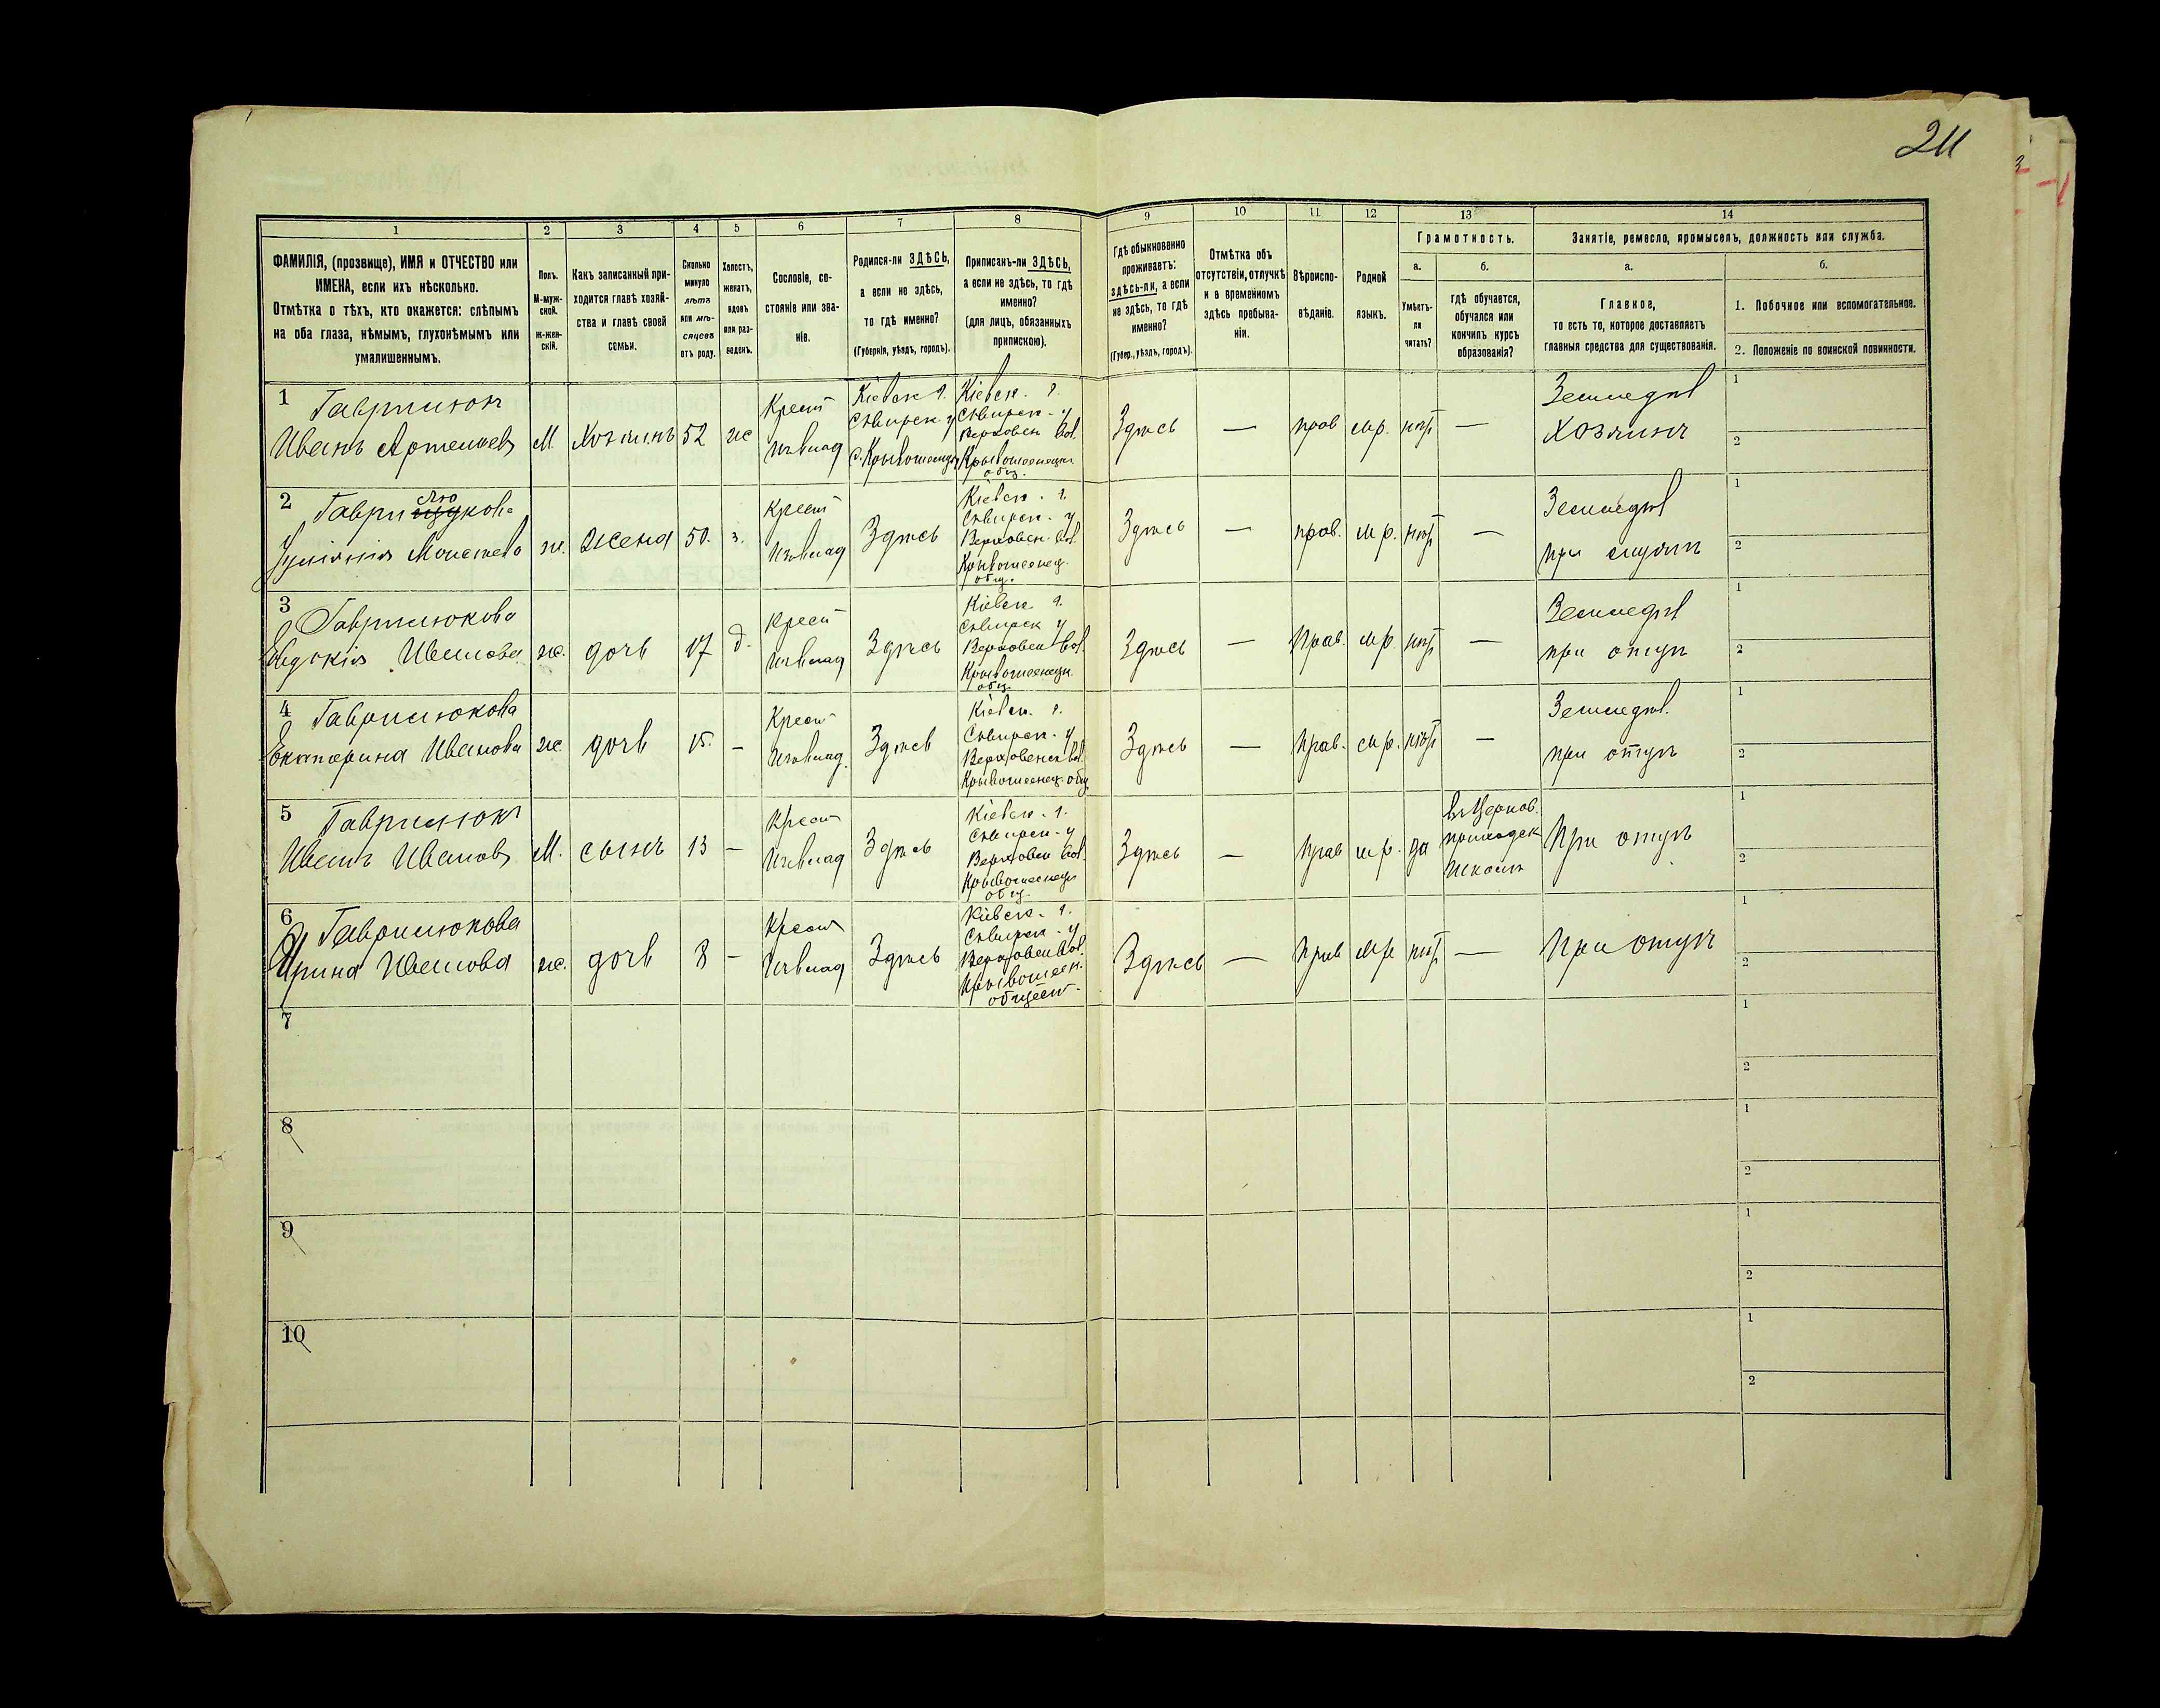 211
1
2
3
4
5
6
7
8
9
10
11
12
13
14
ФАМИЛІЯ, (прозвище), ИМЯ и ОТЧЕСТВО или
ИМЕНА, если ихъ нѣсколько.
Отмѣтка о тѣхъ, кто окажется: слѣпымъ
на оба глаза, нѣмымъ, глухонѣмымъ или
умалишеннымъ.
Полъ.
М-муж-
ской.
Ж-жен-
скій.
Какъ записанный при-
ходится главѣ хозяй-
ства и главѣ своей
семьи.
Сколько
минуло
лѣтъ
или мѣ-
сяцевъ
отъ роду.
Холостъ,
женатъ,
вдовъ
или раз-
веденъ.
Сословіе, со-
стояніе или зва-
ніе.
Родился-ли ЗДѢСЬ,
а если не здѣсь,
то гдѣ именно?
(Губернія, уѣздъ, городъ).
Приписанъ-ли ЗДѢСЬ,
а если не здѣсь, то гдѣ
именно?
(для лицъ, обязанныхъ
припискою).
Гдѣ обыкновенно
проживаетъ:
здѣсь-ли, а если
не здѣсь, то гдѣ
именно?
(Губер., уѣздъ, городъ).
Отмѣтка объ
отсутствіи, отлучкѣ
и о временномъ
здѣсь пребыва-
ніи.
Вѣроиспо-
вѣданіе.
Родной
языкъ.
Грамотность.
а.
Умѣетъ-
ли
читать?
б.
гдѣ обучается,
обучался или
кончилъ курсъ
образованія?
Занятіе, ремесло, промыселъ, должность или служба.
а.
Главное,
то есть то, которое доставляетъ
главныя средства для существованія.
б.
1. Побочное или вспомогательное.
2. Положеніе по воинской повинности.
1
Гаврилюкъ
Иванъ Артемовъ
М.
Хозяинъ
52
ж
Крест
изъ влад
Кіевск г.
Сквирск. у
с. Кривошеинцы
Кіевск. г.
Сквирск. у
Верховен Вол.
Кривошеенецк
общ.
Здѣсь
—
прав
мр.
нѣт
—
Земледѣл
Хозяинъ
1
2
2
Гаврилюкова
ж.
Жена
50.
з.
Крест
изъ влад
Здѣсь
Кіевск. г.
Сквирск. у
Верховен. Вол.
Кривошеенец.
общ.
Здѣсь
—
прав.
мр.
нѣт
—
Земледѣл
при мужѣ
1
2
3
Гаврилюкова
Евдокія Иванова
ж.
дочь
17
д.
Крест
изъ влад
Здѣсь
Кіевск. г.
Сквирск у
Верховен Вол.
Кривошеенецк.
общ.
Здѣсь
—
Прав.
мр.
нѣт
—
Земледѣл
при отцѣ
1
2
4
Гаврилюкова
Екатерина Иванова
ж
дочь
15.
—
Крест
изъ влад.
Здѣсь
Кіевск. г.
Сквирск. у
Верховенск Вол.
Кривошеенец. общ.
Здѣсь
—
Прав.
мр.
нѣт
—
Земледѣл.
при отцѣ
1
2
5
Гаврилюкъ
Иванъ Ивановъ
М.
сынъ
13
—
Крест
изъ влад
Здѣсь
Кіевск. г.
Сквирск. у
Верховен Вол.
Кривошеенецк
общ.
Здѣсь
—
Прав
мр.
да
въ Церков.
приходск
школѣ
При отцѣ
1
2
6
Гаврилюкова
Ирина Иванова
ж.
дочь
8
—
Крест
изъ влад
Здѣсь
Кіевск. г.
Сквирск. у
Верховен Вол.
Кривошеен.
общест.
Здѣсь
—
Прав
мр
нѣт
—
При отцѣ
1
2
7
1
2
8
1
2
9
1
2
10
1
2